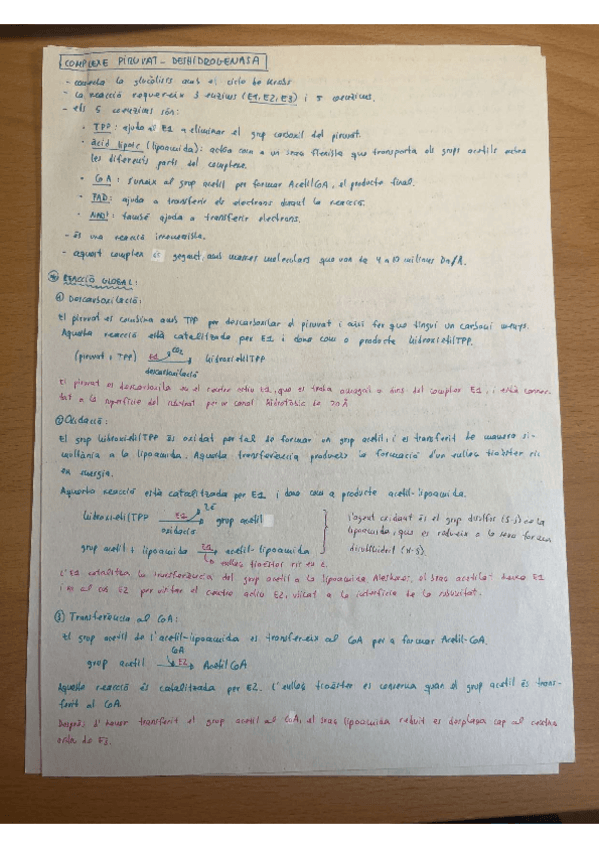 COMPLEXE PIRUVAT-DESHIDROGENASA
- connecta la glucòlisis amb el ciclo de Krebs
- La reacció requereix 3 enzims (E1, E2, E3) i 5 coenzims.
- els 5 coenzims són:
· TPP: ajuda al E1 a eliminar el grup carboxil del piruvat.
· àcid lipoic (lipoamida): actua com a un braç flexible que transporta els grups acetils entre
les diferents parts del complexe.
· CoA: s'uneix al grup acetil per formar Acetil CoA, el producte final.
· FAD: ajuda a transferir els electrons durant la reacció.
· NAD+: també ajuda a transferir electrons.
- és una reacció irreversible.
- aquest complex és gegant, amb masses moleculars que van de 4 a 10 milions Da/A.
REACCIÓ GLOBAL:
① Descarboxilació:
El piruvat es combina amb TPP per descarboxilar el piruvat i així fer que tingui un carboni menys.
Aquesta reacció està catalitzada per E1 i dona com a producte hidroxietilTPP.
(piruvat + TPP) E1 CO2 hidroxietilTPP
descarboxilació
El piruvat es descarboxila en el centre actiu E1, que es troba a dins del complex E1, i està connec-
tat a la superfície del per un canal hidrofòbic de 20 Å
② Oxidació:
El grup hidroxietilTPP és oxidat per tal de formar un grup acetil, i es transferit de manera si-
multània a la lipoamida. Aquesta transferència produeix la formació d'un enllaç tioèster ric
en energia.
Aquesta reacció està catalitzada per E1 i dona com a producte acetil-lipoamida.
hidroxietilTPP E1 2e- grup acetil
oxidació
grup acetil + lipoamida E1 acetil-lipoamida
enllaç tioèster ric en E.
L'agent oxidant és el grup disulfur (S-S) de la
lipoamida, que es redueix a la seva forma
disulfhidril
L'E1 catalitza la transferència del grup acetil a la lipoamida. Aleshores, el braç acetilat E1
i el E2 per visitar el centre actiu E2, a la interfície de la subunitat.
③ Transferència al CoA:
El grup acetil de l'acetil-lipoamida es transfereix al CoA per a formar Acetil-CoA.
CoA
grup acetil E2 Acetil CoA
Aquesta reacció és catalitzada per E2. L'enllaç tioèster es conserva quan el grup acetil és trans-
ferit al CoA.
Després d'haver transferit el grup acetil al CoA, el braç lipoamida reduït es desplaça cap al centre
actiu de E3.